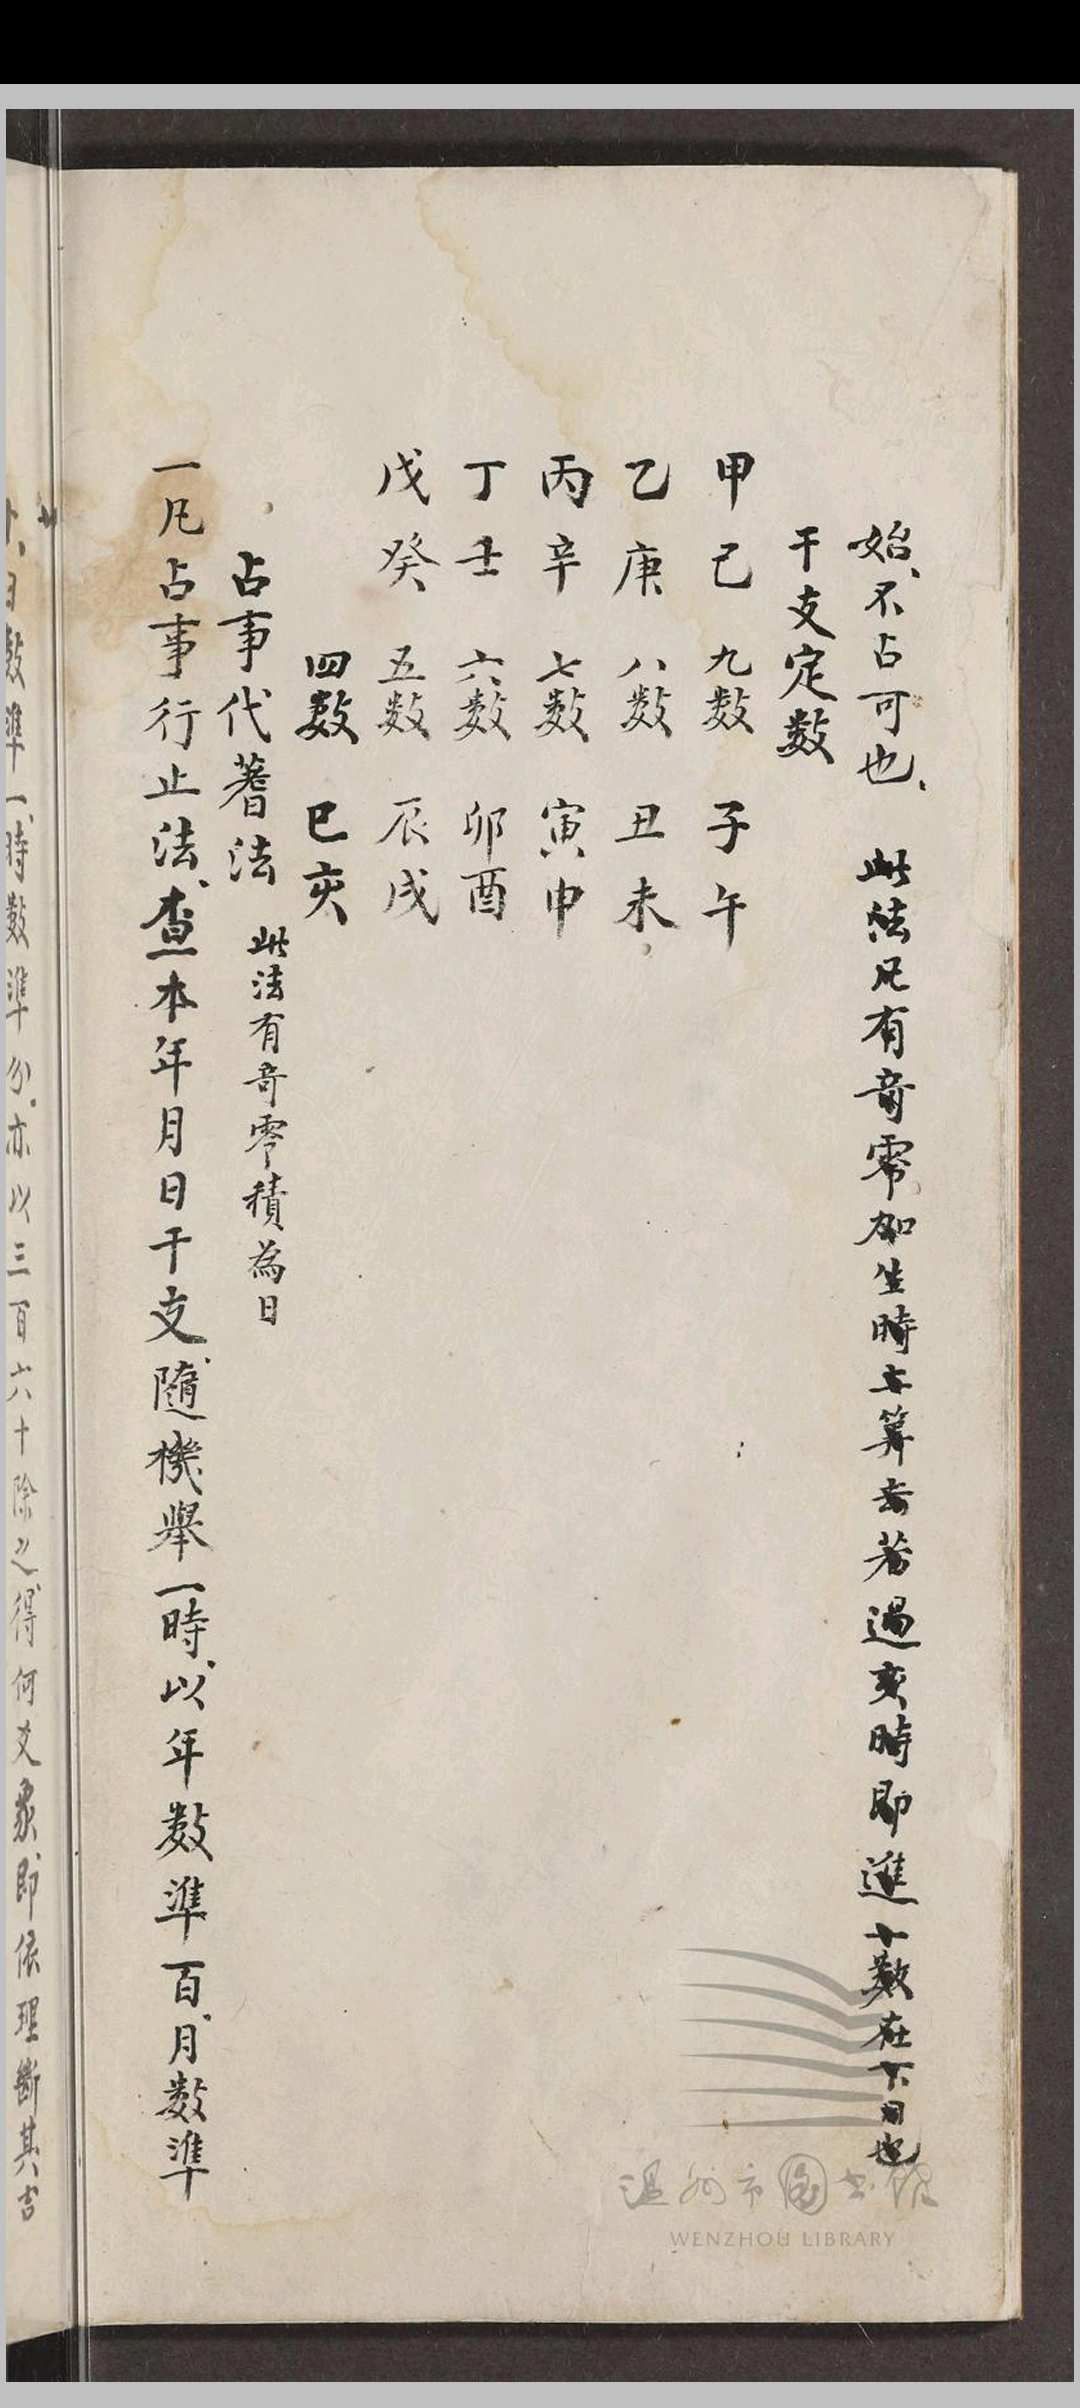 始、不占可也、 此法凡有奇零加生時上算去若過亥時即進十數在下旬也
干支定数
甲己 九数 子午
乙庚 八数 丑未
丙辛 七数 寅申
丁壬 六数 卯酉
戊癸 五数 辰戌
四数 巳亥
占事代蓍法 此法有奇零積為日
一凡占事行止法、查本年月日干支、隨機舉一時、以年数準百、月数準
十、日数準一、時数準分、亦以三百六十除之、得何爻象、即依理斷其吉
温州市图书馆
WENZHOU LIBRARY